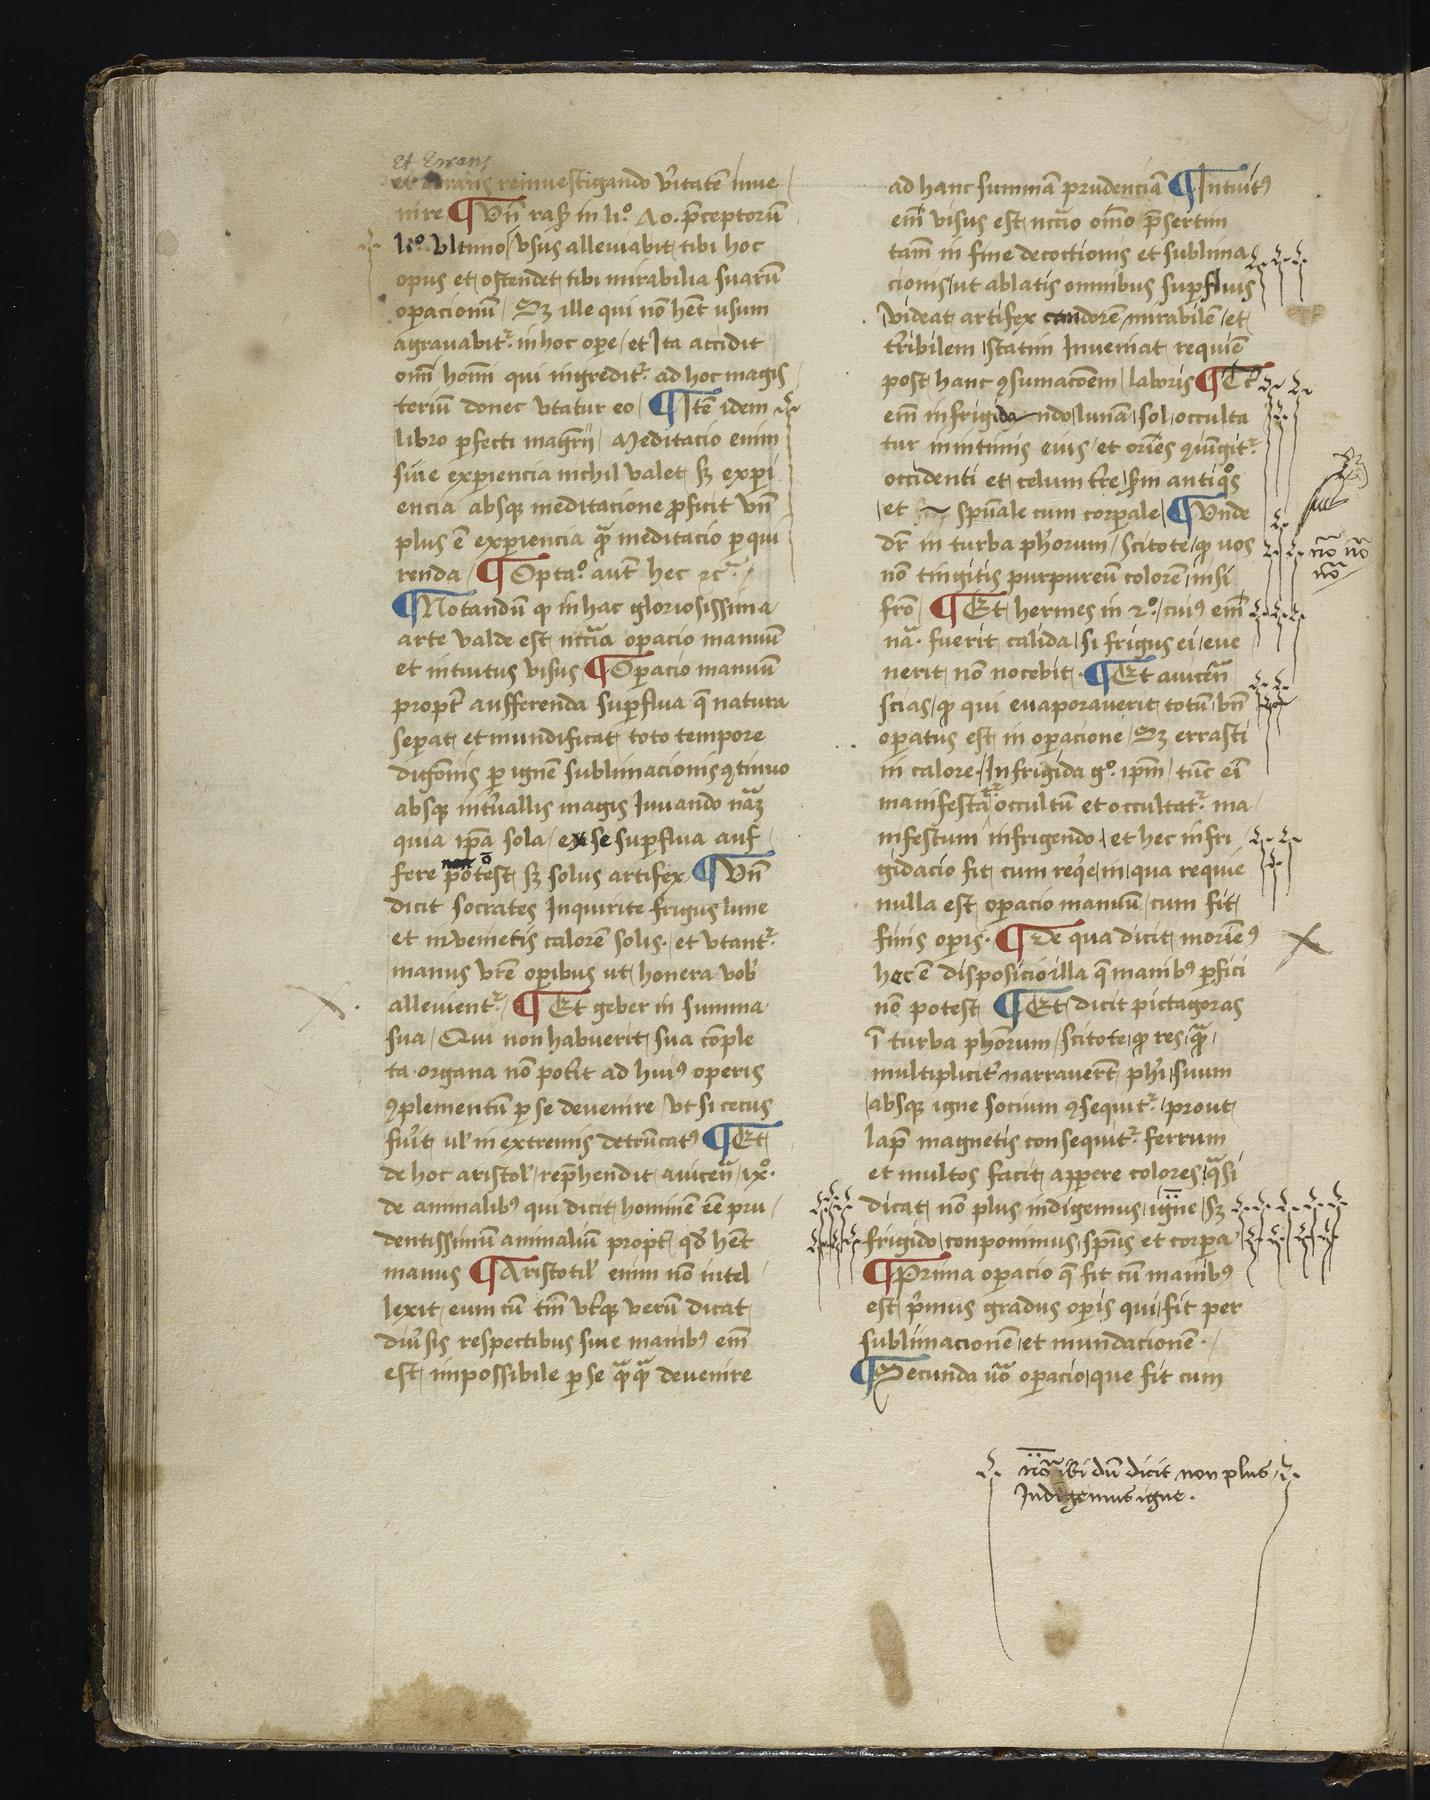 Et Errans
et errans reinuestigando v̉itatē inue
nire ¶ Vn̄ rasꝫ in li.º Λo. p̄ceptorū
li.º vltimo vsus alleuiabit tibi hoc
opus et ostendet tibi mirabilia suarū
oꝑacionū / Sꝫ ille qui nō hēt usum
agrauabit᷑ in hoc oꝑe / et Ita accidit
omī homī qui ingredit᷑ ad hoc magis
teriū donec vtatur eo / ¶ Itē idem
libro ꝑfecti mag̅rij / Meditacio enim
sine exꝑiencia nichil valet sꝫ exꝑi
encia absqꝫ meditacione ꝓficit vn̄
plus ē exꝑiencia quā meditacio ꝑqui
renda / ¶ Opta.º aut̄ hec ⁊c᷑ /
¶ Notandū ꝙ in hac gloriosissima
arte valde est nccīa oꝑacio manuū
et intuitus visus ¶ Oꝑacio manuū
propt̉ aufferenda suꝑflua q̄ natura
seꝑat et mundificat toto tempore
digōnis ꝑ ignē sublimacionis ꝯtinuo
absqꝫ int̉uallis magis Iuuando nāꝫ
quia ip̄a sola / ex se suꝑflua auf
fere non pōtest sꝫ solus artifex ¶ Vn̄
dicit socrates Inquirite frigus lune
et invenietis calorē solis. et vtant᷑
manus vr̄e oꝑibus ut honera vob̉
alleuient᷑ / ¶ Et geber in summa
sua / Qui non habuerit sua cōple
ta organa nō pot̉it ad huiꝰ operis
ꝯplementū ꝑ se deuenire / vt si cecus
fu̓it ul̓ in extremis detrūcatꝰ ¶ Et
de hoc aristol̓ / rep̄hendit auicen̄ / ix.º
de animalibꝰ qui dicit hominē ēē pru
dentissimū animaliū propt̉ qd̓ hēt
manus ¶ Aristotil̓ enim nō intel
lexit eum cū tm̄ vt̉qꝫ verū dicat
diu̓sis respectibus sine manibꝰ em̄
est impossibile ꝑ se quāquā deuenire
ad hanc summā prudenciā ¶ Intuitꝰ
em̄ visus est nccīo omō p̄sertim
tam̄ in fine decoctionis et sublima
cionis / ut ablatis omnibus suꝑfluis
videat artifex candorē mirabilē / et
t̉ribilem statim Inueniat requiē
post hanc ꝯsumacōem / laboris ¶ Et.º
em̄ infrigida ndo / lunā / sol / occulta
tur inintimis eius / et oriēs ꝯiūgit᷑
occidenti et celum t̉re / sꝫm antiqͦs
et spūale cum corꝑale ¶ Vnde
dr̄ in turba ph̓orum / scitote / ꝙ uos
nō tingitis purpureū colorē nisi
frō ¶ Et hermes in 2.º / cuiꝰ em̄
nā. fuerit calida / si frigus ei / eue
nerit nō nocebit. ¶ Et auicen̄
scias / ꝙ qui euaporauerit totū / bn̄
oꝑatus est in oꝑacione / Sꝫ errasti
in calore. / Infrigida g.º ipm̄ / tūc ei
manifestat᷑ occultū et occultat᷑ ma
nifestum infrigendo / et hec infri
gidacio fit cum req̓e / in qua requie
nulla est oꝑacio manuū / cum fit
finis oꝑis. ¶ De qua dicit moriēꝰ
hec ē disposicio illa q̄ manibꝰ ꝑfici
nō potest ¶ Et dicit pictagoras
ī turba ph̓orum / scitote / ꝙ res / quā
multiplicit̉ narrauer̄t ph̓i / suum
absqꝫ igne socium ꝯsequit᷑ / prout
lap̄ magnetis consequit᷑ ferrum
et multos facit apꝑere colores / qͣsi
dicat nō plus indigemus / igne / sꝫ
frigido / conponimus / spūs et corꝑa
¶ Prima oꝑacio q̄ fit cū manibꝰ
est p̓mus gradus oꝑis qui / fit per
sublimacionē et mundacionē. /
¶ Secunda u̓o oꝑacio / que fit cum
nō nō
nō
nōͣ ibi dū dicit non plus
Indigemus igne.